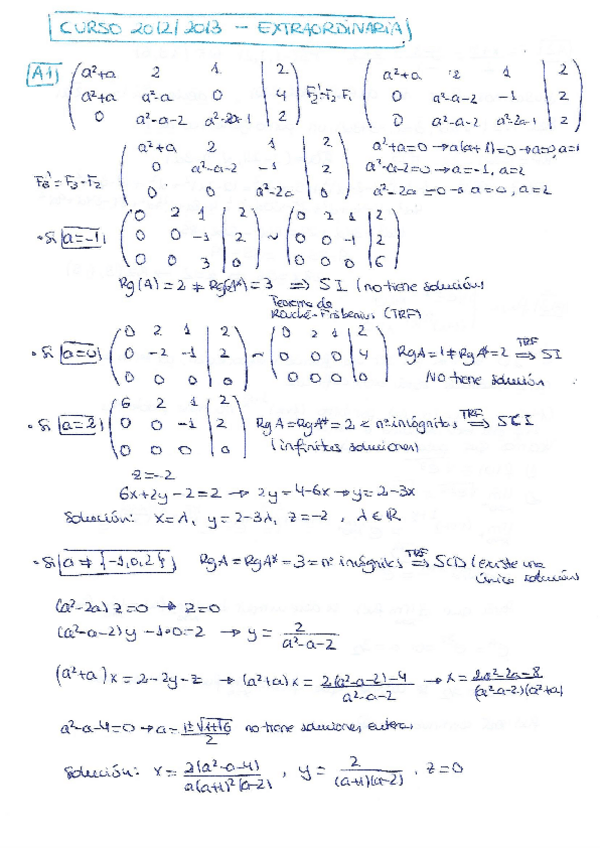 CURSO 2012/2013 - EXTRAORDINARIA
A1) ( a²+a 2 1 | 2 ) ( a²+a 2 1 | 2 )
( a²+a a²-a 0 | 4 ) F₂'=F₂-F₁ ( 0 a²-a-2 -1 | 2 )
( 0 a²-a-2 a²-2a-1 | 2 ) ( 0 a²-a-2 a²-2a-1 | 2 )
( a²+a 2 1 | 2 ) a²+a=0 → a(a+1)=0 → a=0, a=-1
F₃'=F₃-F₂ ( 0 a²-a-2 -1 | 2 ) a²-a-2=0 → a=-1, a=2
( 0 0 a²-2a | 0 ) a²-2a=0 → a=0, a=2
( 0 2 1 | 2 ) ( 0 2 1 | 2 )
• Si a=-1, ( 0 0 -1 | 2 ) ~ ( 0 0 -1 | 2 )
( 0 0 3 | 0 ) ( 0 0 0 | 6 )
Rg(A)=2 ≠ Rg(A*)=3 ⇒ SI (no tiene solución)
Teorema de
Rouché-Frobenius (TRF)
( 0 2 1 | 2 ) ( 0 2 1 | 2 )
• Si a=0, ( 0 -2 -1 | 2 ) ~ ( 0 0 0 | 4 ) RgA=1≠RgA*=2 TRF⇒ SI
( 0 0 0 | 0 ) ( 0 0 0 | 0 ) No tiene solución
( 6 2 1 | 2 )
• Si a=2, ( 0 0 -1 | 2 ) RgA=RgA*=2 < nº incógnitas TRF⇒ SCI
( 0 0 0 | 0 ) (infinitas soluciones)
z=-2
6x+2y-2=2 → 2y=4-6x → y=2-3x
Solución: x=λ, y=2-3λ, z=-2, λ∈ℝ
• Si a≠{-1,0,2} RgA=RgA*=3=nº incógnitas TRF⇒ SCD (existe una
única solución)
(a²-2a)z=0 → z=0
(a²-a-2)y-1·0=2 → y=2/(a²-a-2)
(a²+a)x=2-2y-z → (a²+a)x=(2(a²-a-2)-4)/(a²-a-2) → x=(2a²-2a-8)/((a²-a-2)(a²+a))
a²-a-4=0 → a=(1±√(1+16))/2 no tiene soluciones enteras
Solución: x=2(a²-a-4)/(a(a+1)²(a-2)), y=2/((a+1)(a-2)), z=0